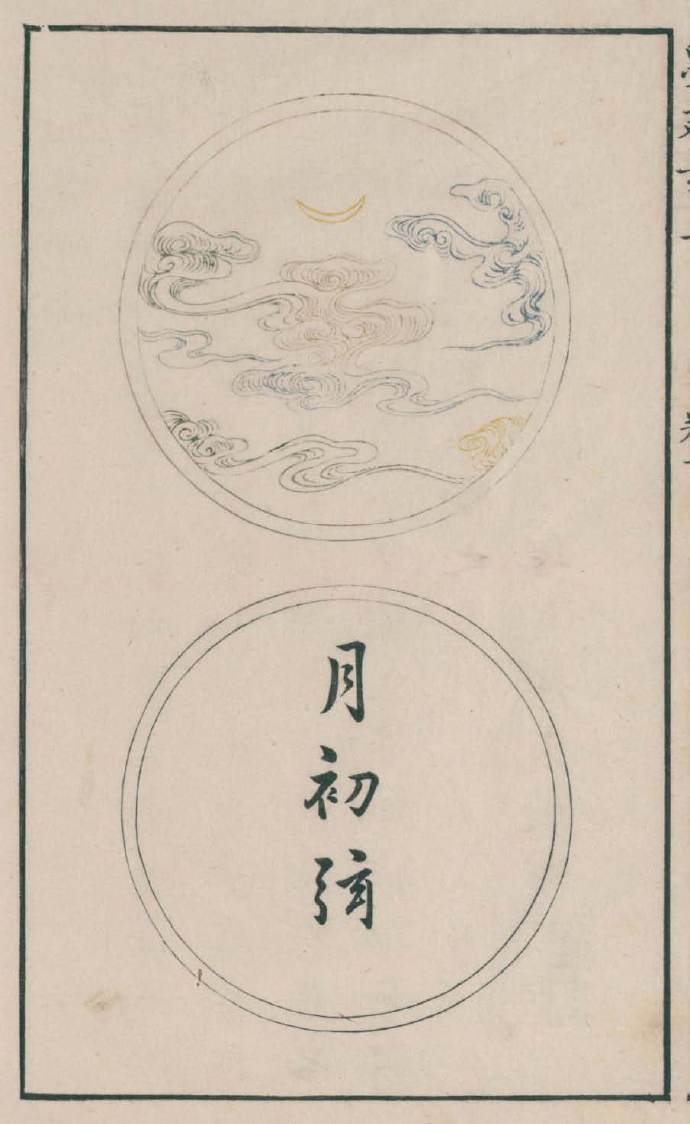 月初弦